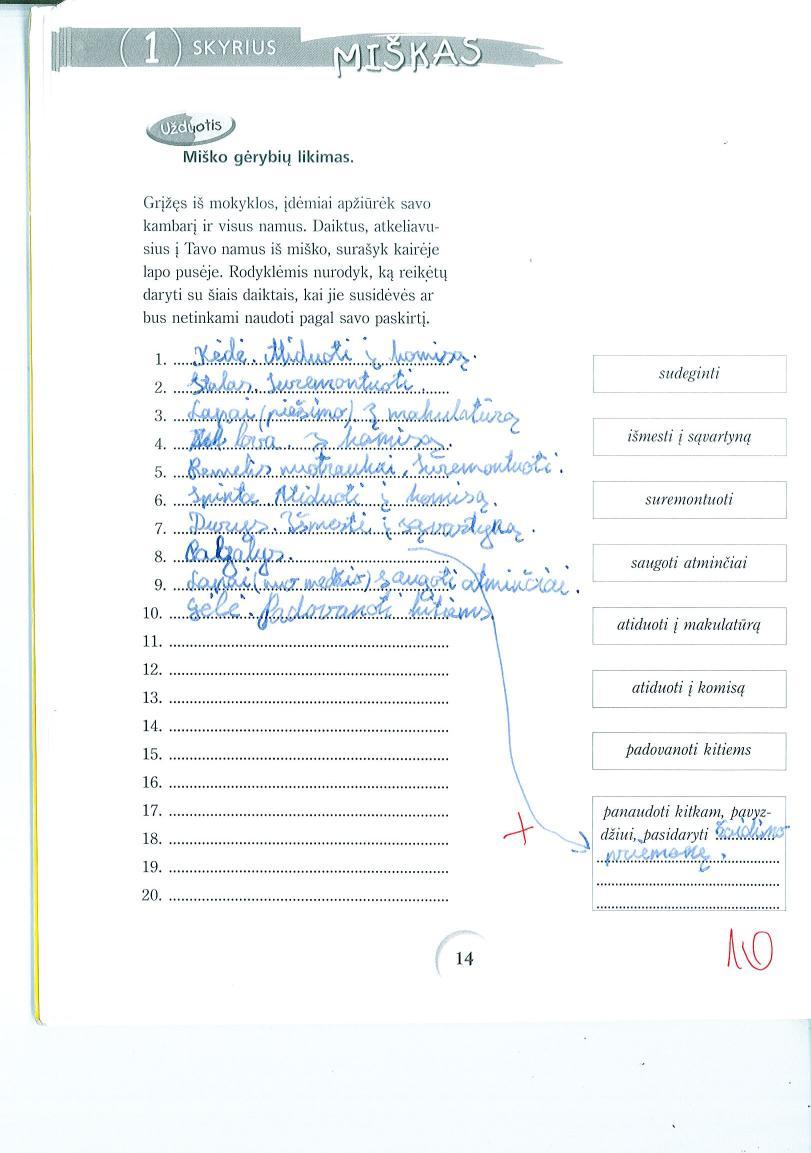 1 SKYRIUS MIŠKAS
Užduotis
Miško gėrybių likimas.
Grįžęs iš mokyklos, įdėmiai apžiūrėk savo
kambarį ir visus namus. Daiktus, atkeliavu-
sius į Tavo namus iš miško, surašyk kairėje
lapo pusėje. Rodyklėmis nurodyk, ką reikėtų
daryti su šiais daiktais, kai jie susidėvės ar
bus netinkami naudoti pagal savo paskirtį.
1. Kėdė. Atiduoti į komisą.
2. Stalas. Suremontuoti.
3. Lapai (piešimo) Į makulatūrą
4. lova. Į komisą.
5. Remelis nuotraukai, Suremontuoti.
6. Spinta Atiduoti į komisą.
7. Durys. Išmesti į sąvartyną.
8. Pagalys.
9. Lapai (nuo medžio) saugoti atminčiai.
10. Gėlė. Padovanoti kitiems.
11.
12.
13.
14.
15.
16.
17.
18.
19.
20.
sudeginti
išmesti į sąvartyną
suremontuoti
saugoti atminčiai
atiduoti į makulatūrą
atiduoti į komisą
padovanoti kitiems
panaudoti kitkam, pavyz-
džiui, pasidaryti žaidimo
priemonę.
+
10
14